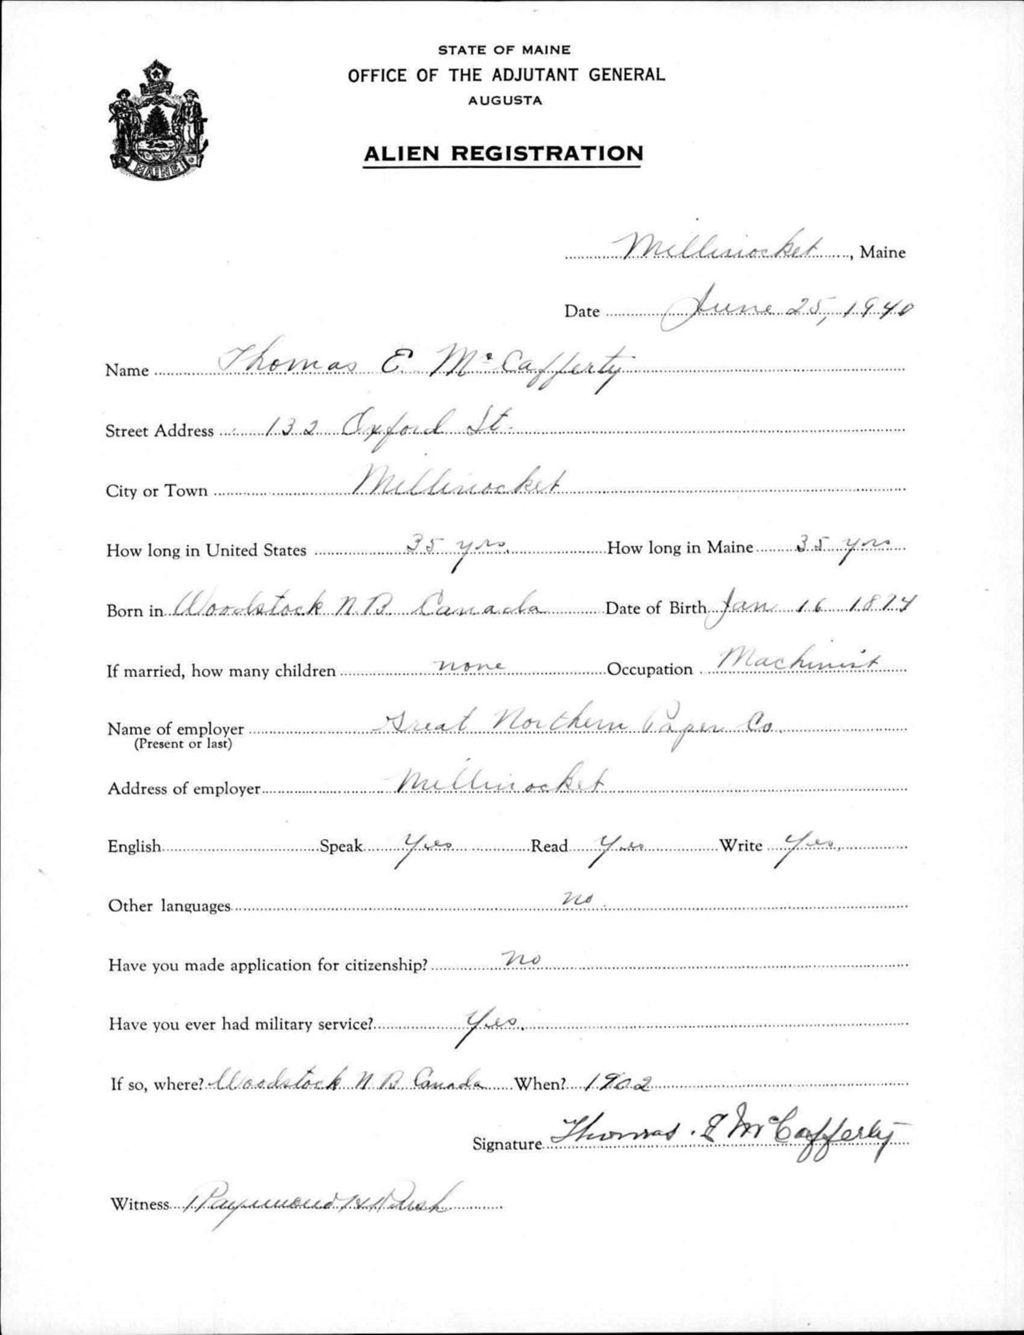 STATE OF MAINE
OFFICE OF THE ADJUTANT GENERAL
AUGUSTA
ALIEN REGISTRATION
MAINE
Millinocket, Maine
Date June 25, 1940
Name Thomas E. McCafferty
Street Address 132 Oxford St.
City or Town Millinocket
How long in United States 35 yrs. How long in Maine 35 yrs
Born in Woodstock N B Canada Date of Birth Jan 16 1874
If married, how many children none Occupation Machinist
Name of employer Great Northern Paper Co.
(Present or last)
Address of employer Millinocket
English Speak Yes Read Yes Write Yes.
Other languages no.
Have you made application for citizenship? No
Have you ever had military service? Yes.
If so, where? Woodstock N B Canada When? 1902
Signature Thomas. E McCafferty
Witness Raymond H